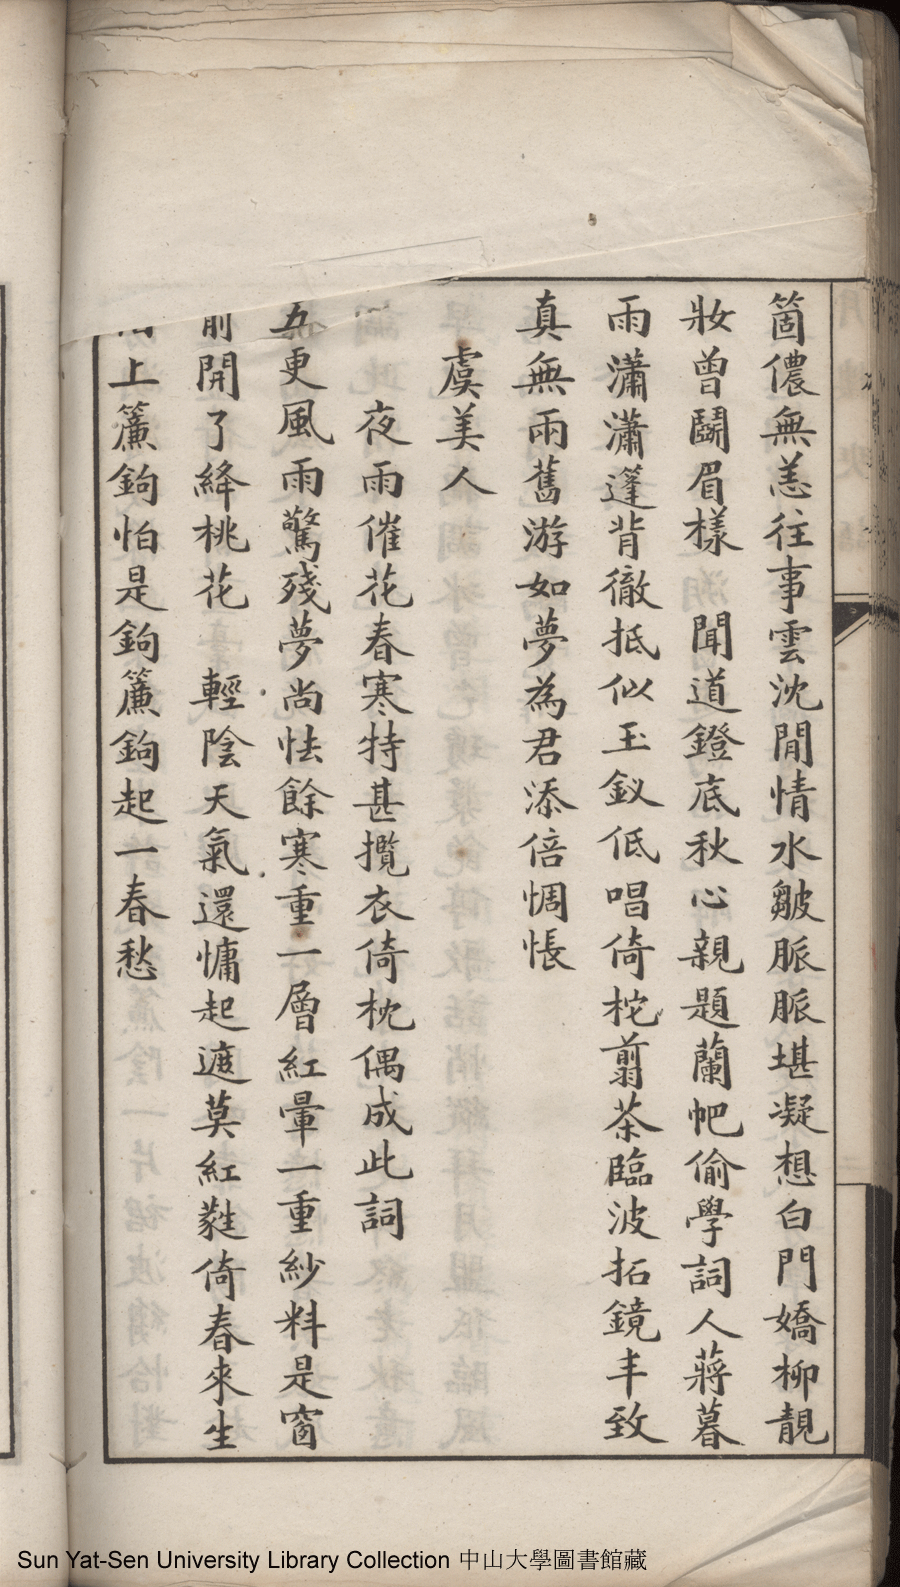 箇儂無恙往事雲沈閒情水皺脈脈堪凝想白門嬌柳靚
妝曾鬬眉樣　聞道鐙底秋心親題蘭帊偷學詞人蔣暮
雨瀟瀟篷背徹抵似玉釵低唱倚柁翦茶臨波拓鏡丰致
真無兩舊游如夢為君添倍惆悵
虞美人
夜雨催花春寒特甚攬衣倚枕偶成此詞
五更風雨驚殘夢尚怯餘寒重一層紅暈一重紗料是窗
前開了絳桃花　輕陰天氣還慵起遮莫紅蕤倚春來生
上簾鉤怕是鉤簾鉤起一春愁
Sun Yat-Sen University Library Collection 中山大學圖書館藏